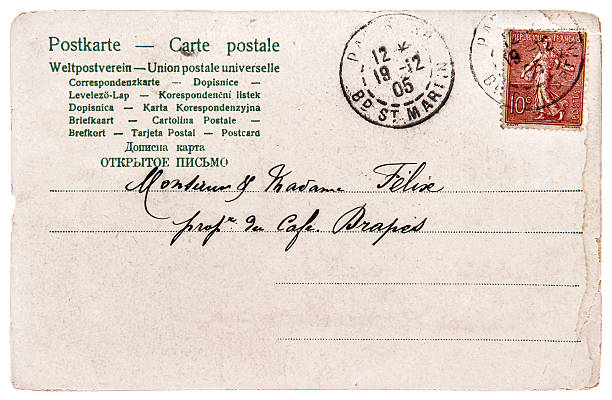 Postkarte — Carte postale
Weltpostverein — Union postale universelle
Correspondenzkarte — Dopisnice —
Levelező-Lap — Korespondenční listek
Dopisnica — Karta Korespondenzyjna
Briefkaart — Cartolina Postale —
Brefkort — Tarjeta Postal — Postcard
Дописна карта
ОТКРЫТОЕ ПИСЬМО
12
19 -12
05
BD ST MARTIN
REPUBLIQUE FRANÇAISE
19
10c
Monsieur & Madame Félix
propre du Café. Brapès